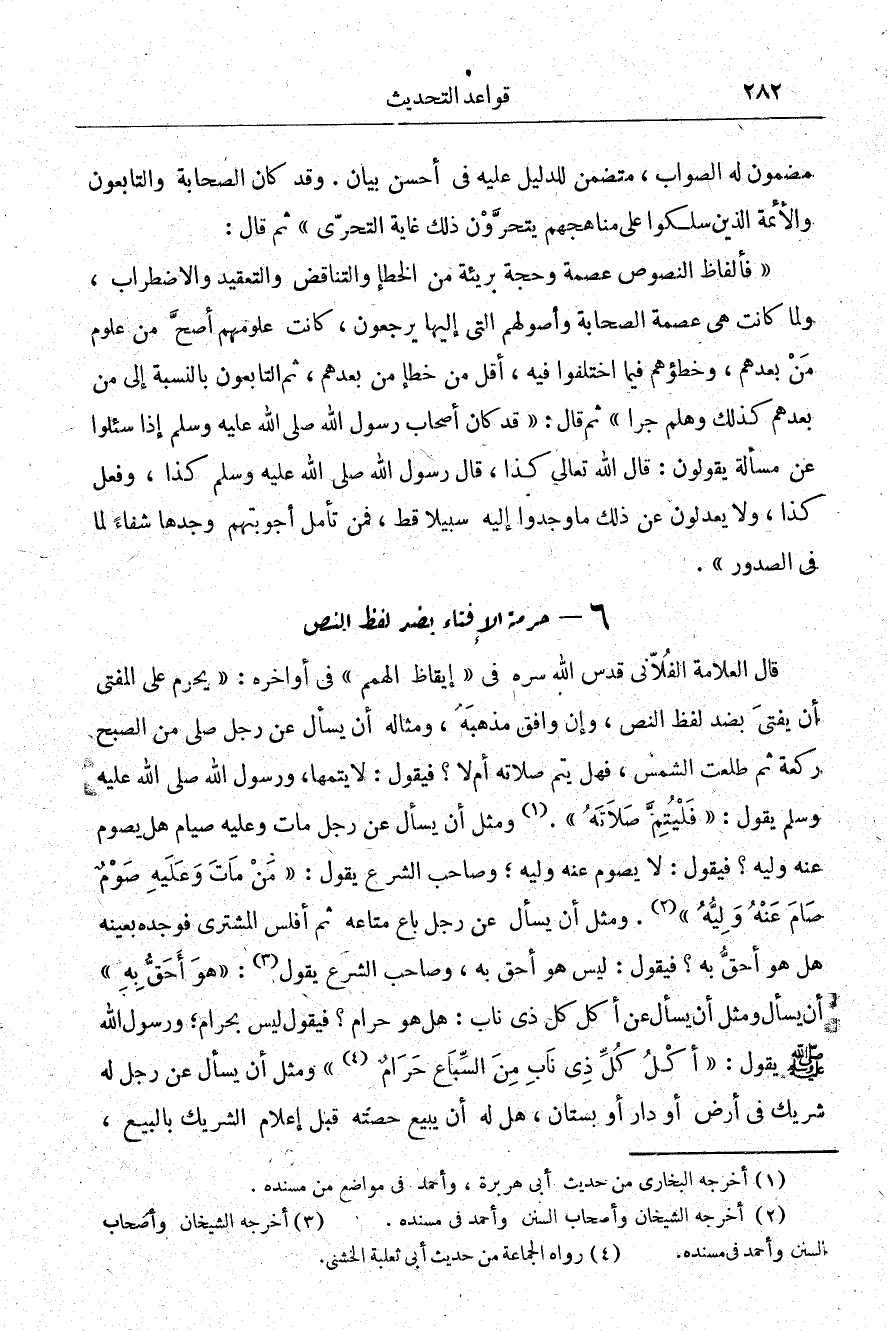 ٢٨٢
قواعد التحديث
مضمون له الصواب ، متضمن للدليل عليه فى أحسن بيان . وقد كان الصحابة والتابعون
والأئمة الذين سلكوا على مناهجهم يتحرَّوْن ذلك غاية التحرّى » ثم قال :
« فألفاظ النصوص عصمة وحجة بريئة من الخطإ والتناقض والتعقيد والاضطراب ،
ولما كانت هى عصمة الصحابة وأصولهم التى إليها يرجعون ، كانت علومهم أصحَّ من علوم
مَنْ بعدهم ، وخطؤهم فيما اختلفوا فيه ، أقل من خطإ من بعدهم ، ثم التابعون بالنسبة إلى من
بعدهم كذلك وهلم جرا » ثم قال : « قد كان أصحاب رسول الله صلى الله عليه وسلم إذا سئلوا
عن مسألة يقولون : قال الله تعالي كذا ، قال رسول الله صلى الله عليه وسلم كذا ، وفعل
كذا ، ولا يعدلون عن ذلك ماوجدوا إليه سبيلا قط ، فمن تأمل أجوبتهم وجدها شفاءً لما
فى الصدور » .
٦ – حرمة الإفتاء بضد لفظ النص
قال العلامة الفُلاّنى قدس الله سره فى « إيقاظ الهمم » فى أواخره : « يحرم على المفتى
أن يفتىَ بضد لفظ النص ، وإن وافق مذهبَهُ ، ومثاله أن يسأل عن رجل صلى من الصبح
ركعة ثم طلعت الشمس ، فهل يتم صلاته أم لا ؟ فيقول : لايتمها، ورسول الله صلى الله عليه
وسلم يقول : « فَلْيُتِمَّ صَلاَتَهُ » .(١) ومثل أن يسأل عن رجل مات وعليه صيام هل يصوم
عنه وليه ؟ فيقول : لا يصوم عنه وليه ؛ وصاحب الشرع يقول : « مَنْ مَاتَ وَعَلَيهِ صَوْمٌ
صَامَ عَنْهُ وَلِيُّهُ »(٢) . ومثل أن يسأل عن رجل باع متاعه ثم أفلس المشترى فوجده بعينه
هل هو أحقُّ به ؟ فيقول : ليس هو أحق به ، وصاحب الشرع يقول(٣) : «هوَ أَحَقُّ بِهِ »
أن يسأل ومثل أن يسأل عن أكل كل ذى ناب : هل هو حرام ؟ فيقول ليس بحرام؛ ورسول الله
ﷺ يقول : « أَكْلُ كُلِّ ذِى نَابٍ مِنَ السِّبَاعِ حَرَامٌ (٤) » ومثل أن يسأل عن رجل له
شريك فى أرض أو دار أو بستان ، هل له أن يبيع حصته قبل إعلام الشريك بالبيع ،
(١) أخرجه البخارى من حديث أبى هريرة ، وأحمد فى مواضع من مسنده .
(٢) أخرجه الشيخان وأصحاب السنن وأحمد فى مسنده . (٣) أخرجه الشيخان وأصحاب
السنن وأحمد فى مسنده. (٤) رواه الجماعة من حديث أبى ثعلبة الخشنى.